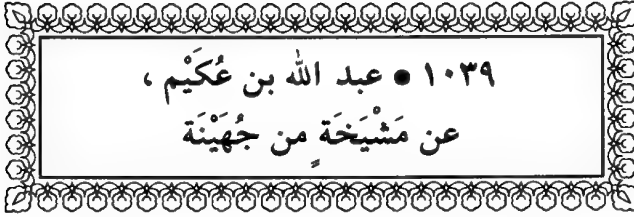 ١٠٣٩ ● عبد الله بن عُكَيْم ،
عن مَشْيَخَةٍ من جُهَيْنَة